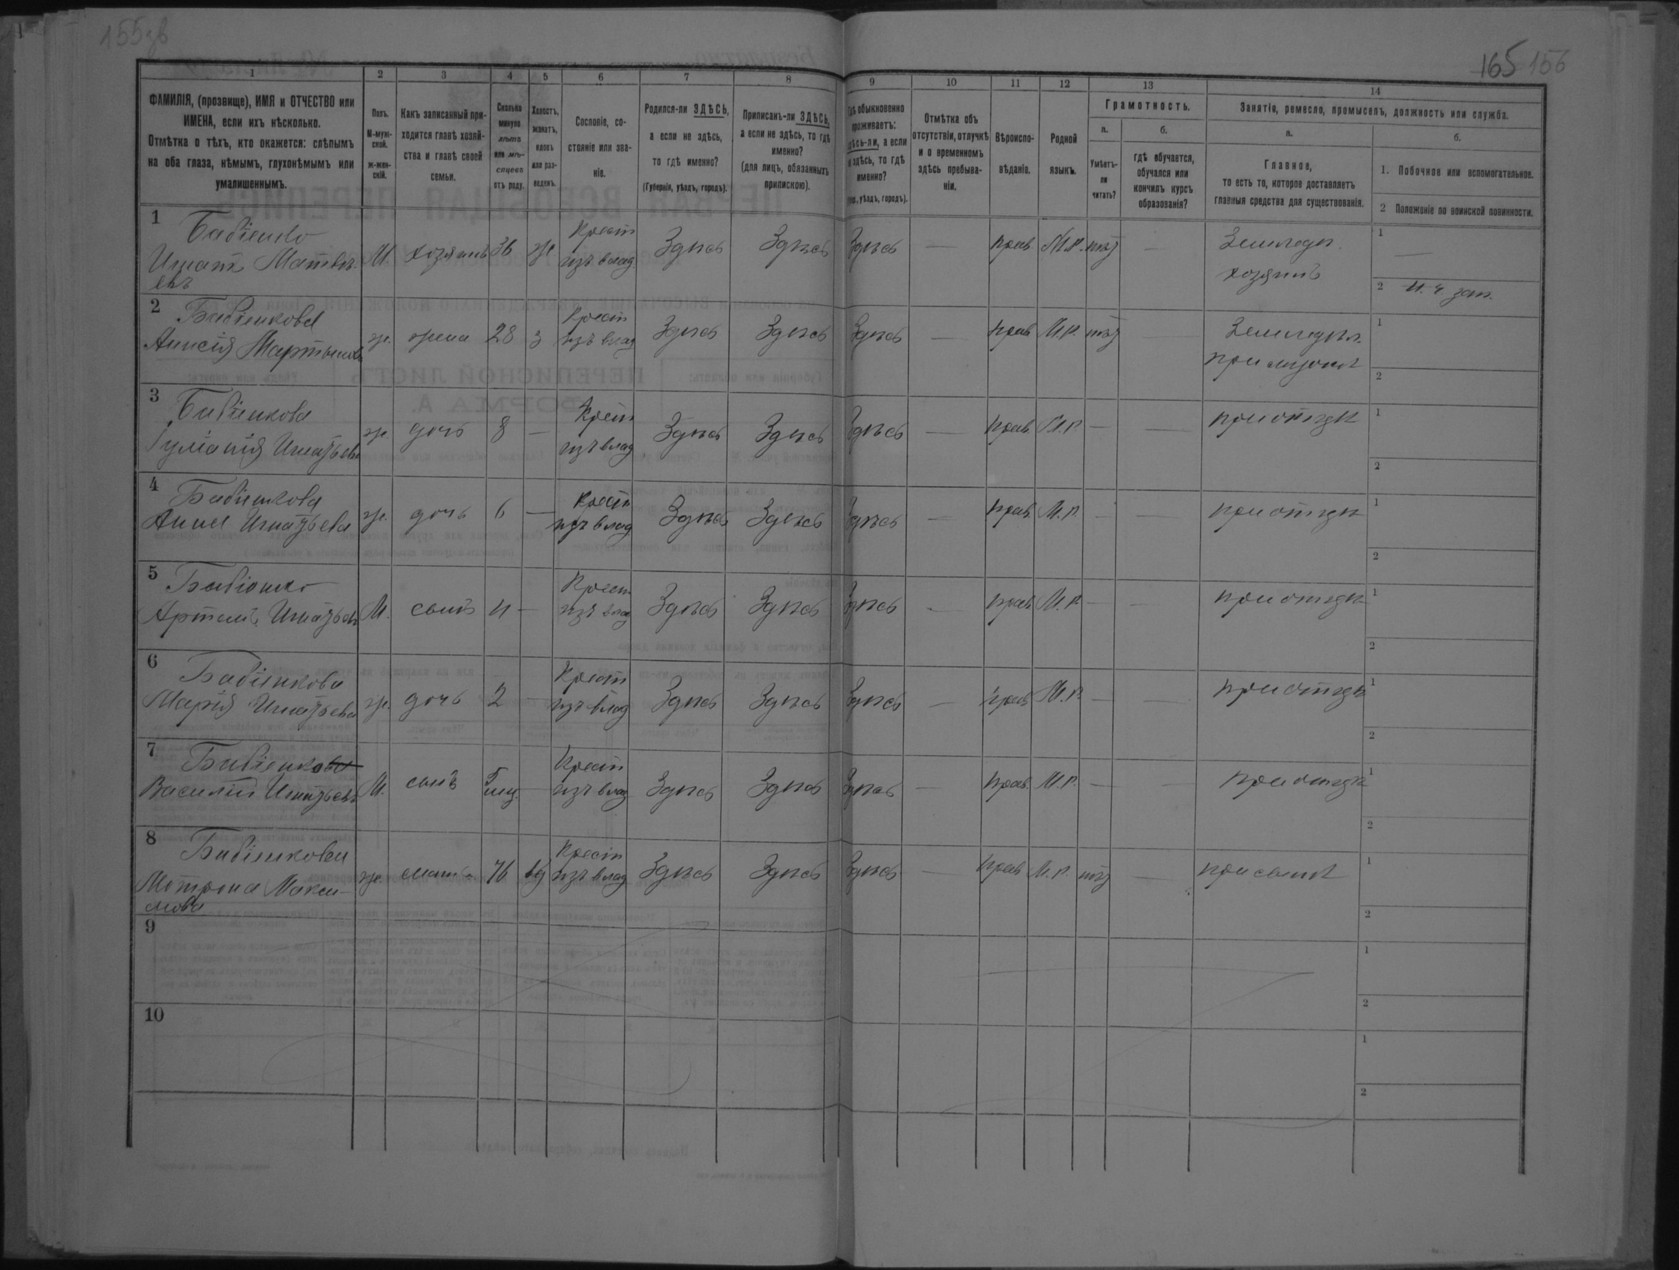 155зв
165 156
1
2
3
4
5
6
7
8
9
10
11
12
13
14
ФАМИЛІЯ, (прозвище), ИМЯ и ОТЧЕСТВО или
ИМЕНА, если ихъ нѣсколько.
Отмѣтка о тѣхъ, кто окажется: слѣпымъ
на оба глаза, нѣмымъ, глухонѣмымъ или
умалишеннымъ.
Полъ.
М-муж-
ской.
ж-жен-
скій.
Какъ записанный при-
ходится главѣ хозяй-
ства и главѣ своей
семьи.
Сколько
минуло
лѣтъ
или мѣ-
сяцевъ
отъ роду.
Холостъ,
женатъ,
вдовъ
или раз-
веденъ.
Сословіе, со-
стояніе или зва-
ніе.
Родился-ли ЗДѢСЬ,
а если не здѣсь,
то гдѣ именно?
(Губернія, уѣздъ, городъ).
Приписанъ-ли ЗДѢСЬ,
а если не здѣсь, то гдѣ
именно?
(для лицъ, обязанныхъ
припискою).
обыкновенно
проживаетъ:
здѣсь-ли, а если
не здѣсь, то гдѣ
именно?
уѣздъ, городъ).
Отмѣтка объ
отсутствіи, отлучкѣ
и о временномъ
здѣсь пребыва-
ніи.
Вѣроиспо-
вѣданіе.
Родной
языкъ.
Грамотность.
а.
Умѣетъ-
ли
читать?
б.
гдѣ обучается,
обучался или
кончилъ курсъ
образованія?
Занятіе, ремесло, промыселъ, должность или служба.
а.
Главное,
то есть то, которое доставляетъ
главныя средства для существованія.
б.
1. Побочное или вспомогательное.
2 Положеніе по воинской повинности.
1 Бабіенко
Игнатъ Матвѣ-
евъ М. хозяинъ 36 ж. Крест. изъ влад. Здѣсь Здѣсь Здѣсь — прав. М.Р. — Земледѣл. хозяинъ 1 — 2
2 Бабіенкова
Анисія Мартынова ж. жена 28 з Крест. изъ влад. Здѣсь Здѣсь Здѣсь — прав. М.Р. Земледѣл. при мужѣ 1 2
3 Бабіенкова
Игнатьева ж. дочь 8 — Крест. изъ влад. Здѣсь Здѣсь Здѣсь — прав. М.Р. — — при отцѣ 1 2
4 Бабіенкова
Анна Игнатьева ж. дочь 6 — Крест. изъ влад. Здѣсь Здѣсь Здѣсь — прав. М.Р. — — при отцѣ 1 2
5 Бабіенко
Артемъ Игнатьевъ М. сынъ 4 — Крест. изъ влад. Здѣсь Здѣсь Здѣсь — прав. М.Р. — — при отцѣ 1 2
6 Бабіенкова
Марія Игнатьева ж. дочь 2 — Крест. изъ влад. Здѣсь Здѣсь Здѣсь — прав. М.Р. — — при отцѣ 1 2
7 Бабіенко
Василій Игнатьевъ М. сынъ — Крест. изъ влад. Здѣсь Здѣсь Здѣсь — прав. М.Р. — — при отцѣ 1 2
8 Бабіенкова
Мотрона Макси-
мова ж. мать 76 вд Крест. изъ влад. Здѣсь Здѣсь Здѣсь — прав. М.Р. — при сынѣ 1 2
9 1 2
10 1 2